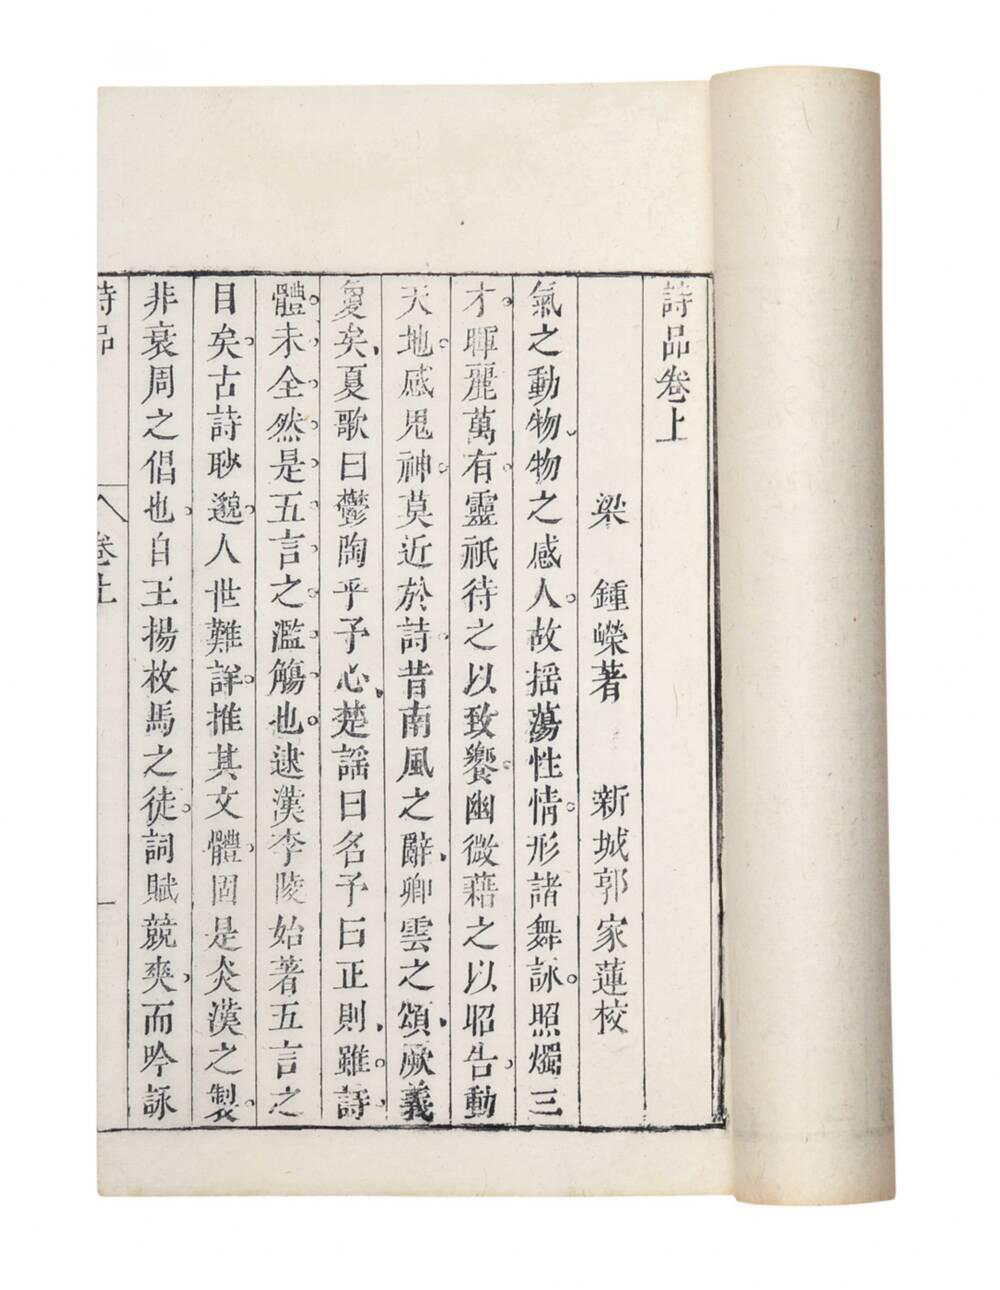 詩品卷上
梁 鍾嶸著 新城郭家蓮校
氣之動物物之感人故揺蕩性情形諸舞詠照燭三
才暉麗萬有靈祇待之以致饗幽微藉之以昭告動
天地感鬼神莫近於詩昔南風之辭卿雲之頌厥義
敻矣夏歌曰鬱陶乎予心楚謡曰名予曰正則雖詩
體未全然是五言之濫觴也逮漢李陵始著五言之
目矣古詩眇邈人世難詳推其文體固是炎漢之製
非衰周之倡也自王揚枚馬之徒詞賦競爽而吟詠
詩品 卷上 一